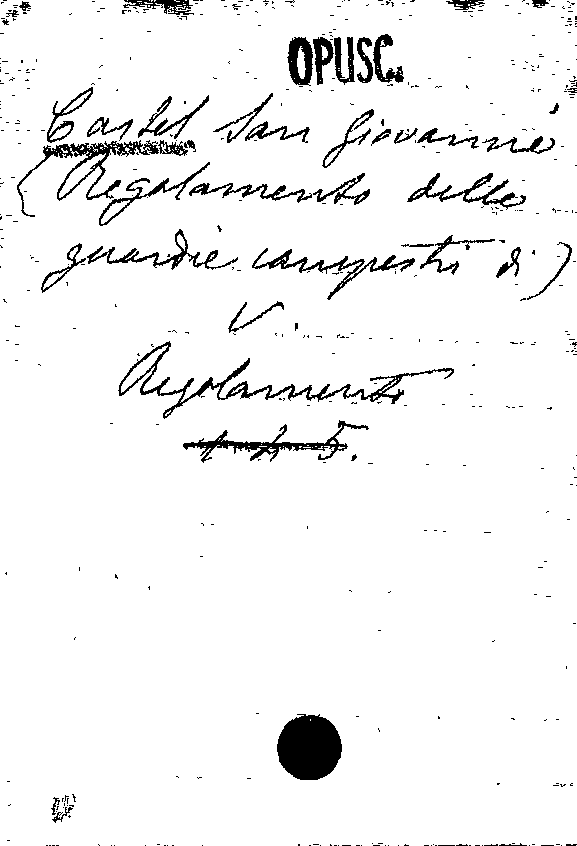 OPUSC.
Castel San Giovanni
(Regolamento delle
guardie campestri di)
V.
Regolamento